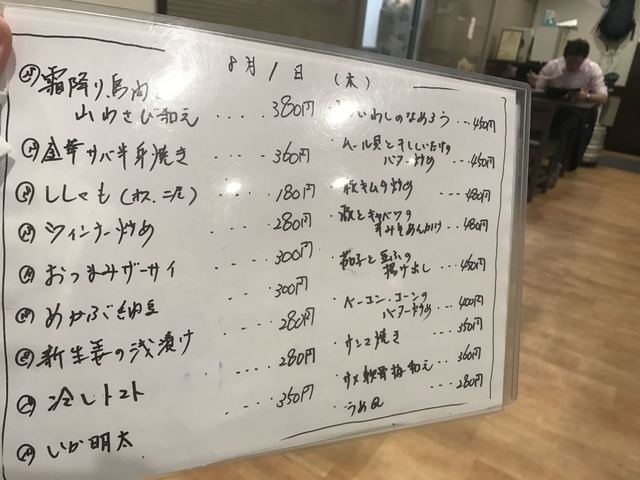 8月1日(木)
霜降り馬肉
山わさび和え ････380円
金華サバ半身焼き ････360円
ししゃも(オス、二尾) ････180円
ウィンナー炒め ････280円
おつまみザーサイ ････300円
めかぶ納豆 300円
新生姜の浅漬け ････280円
冷しトマト ････280円
いか明太 ････350円
いわしのなめろう ･･･450円
ムール貝としいたけの
バター炒め ･･･450円
豚キムチ炒め ･･･480円
豚とキャベツの
辛みそあんかけ ･･･480円
茄子と豆ふの
揚げ出し ･･･450円
ベーコン、コーンの
バター炒め ･･･400円
サンマ焼き ･･･350円
サメ軟骨梅和え ･･･360円
うめQ ･･･280円